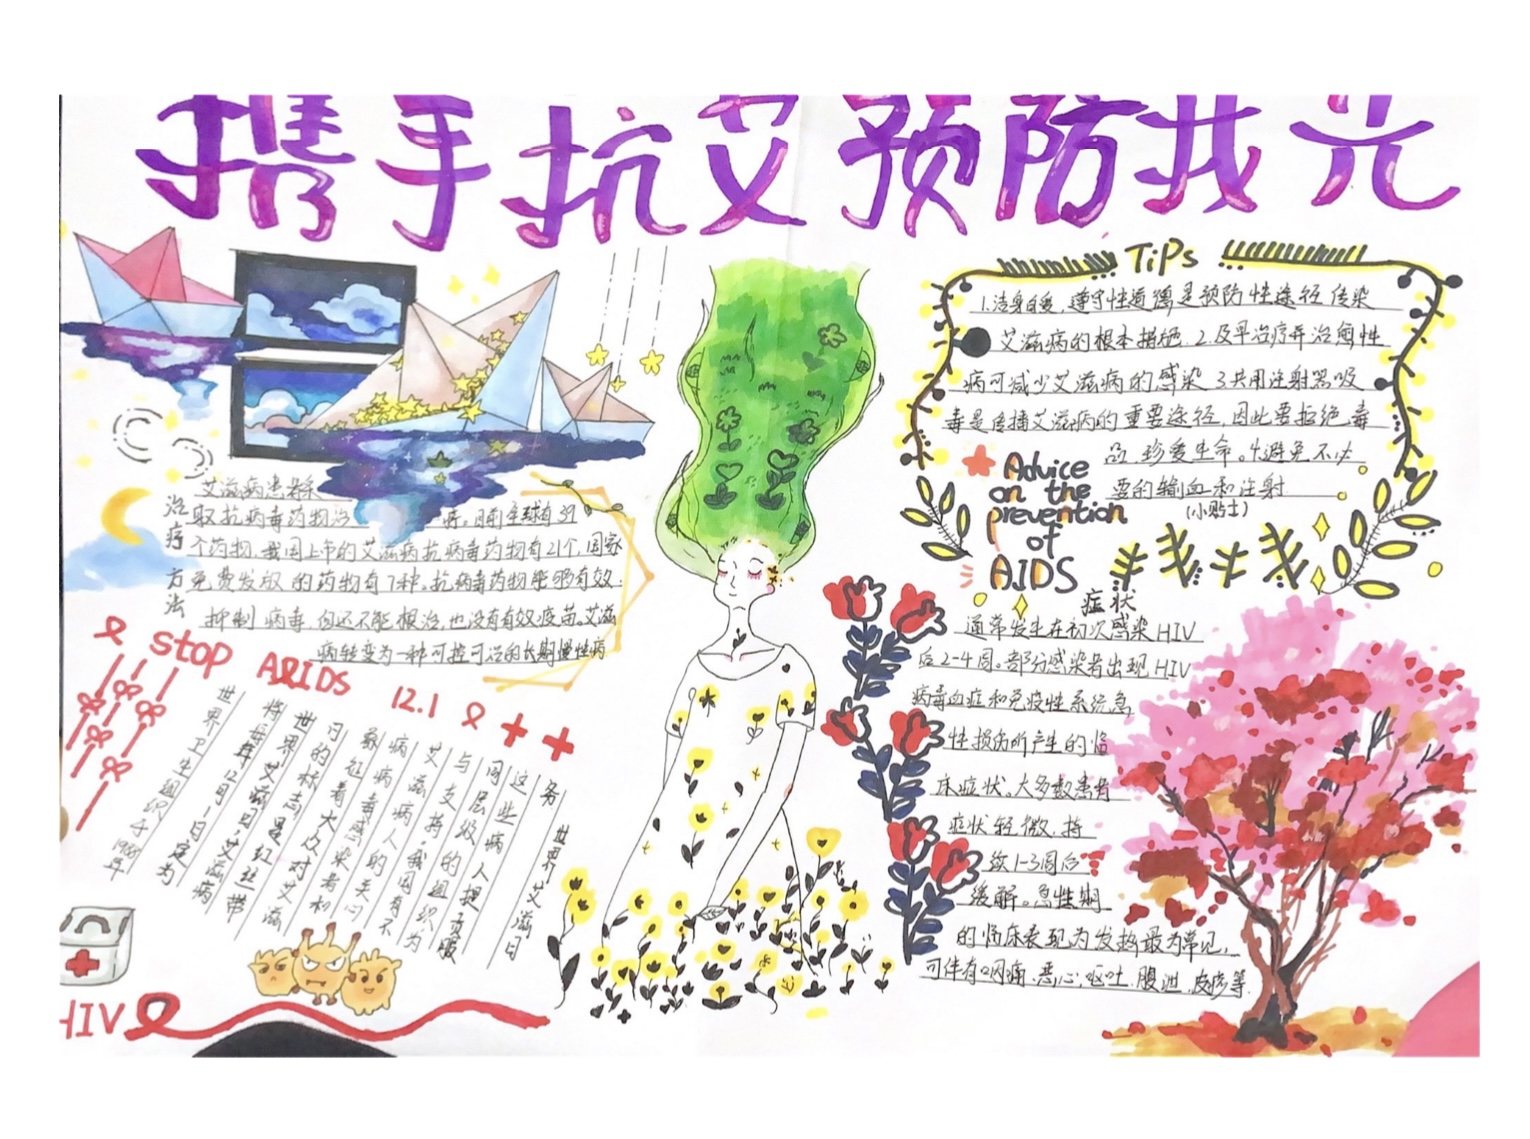 携手抗艾预防我先
Tips
1.洁身自爱,遵守性道德是预防性途径传染
艾滋病的根本措施.2.及早治疗并治愈性
病可减少艾滋病的感染 3.共用注射器吸
毒是传播艾滋病的重要途径,因此要拒绝毒
品,珍爱生命。4.避免不必
要的输血和注射
(小贴士)
Advice
on the
prevention
of
AIDS
治疗方法
艾滋病患者采
取抗病毒药物治疗。目前全球有39
个药物,我国上市的艾滋病抗病毒药物有21个,国家
免费发放的药物有7种.抗病毒药物能够有效
抑制病毒,但还不能根治,也没有有效疫苗,艾滋
病转变为一种可控可治的长期慢性病
stop AIDS 12.1
世界卫生组织于1988年
将每年12月1日定为
世界艾滋日,艾滋病
日的标志是红丝带
象征着大众对艾滋
病病毒感染者和
艾滋病人的关心
与支持,我国有不
同层级的组织为
这些病人提供服
务
世界艾滋日
症状
通常发生在初次感染HIV
后2-4周。部分感染者出现HIV
病毒血症和免疫性系统急
性损伤所产生的临
床症状。大多数患者
症状轻微,持
续1-3周后
缓解。急性期
的临床表现为发热最为常见,
可伴有咽痛.恶心.呕吐.腹泄.皮疹等.
HIV